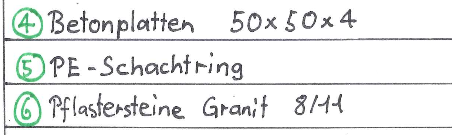 ④ Betonplatten 50x50x4
⑤ PE-Schachtring
⑥ Pflastersteine Granit 8/11